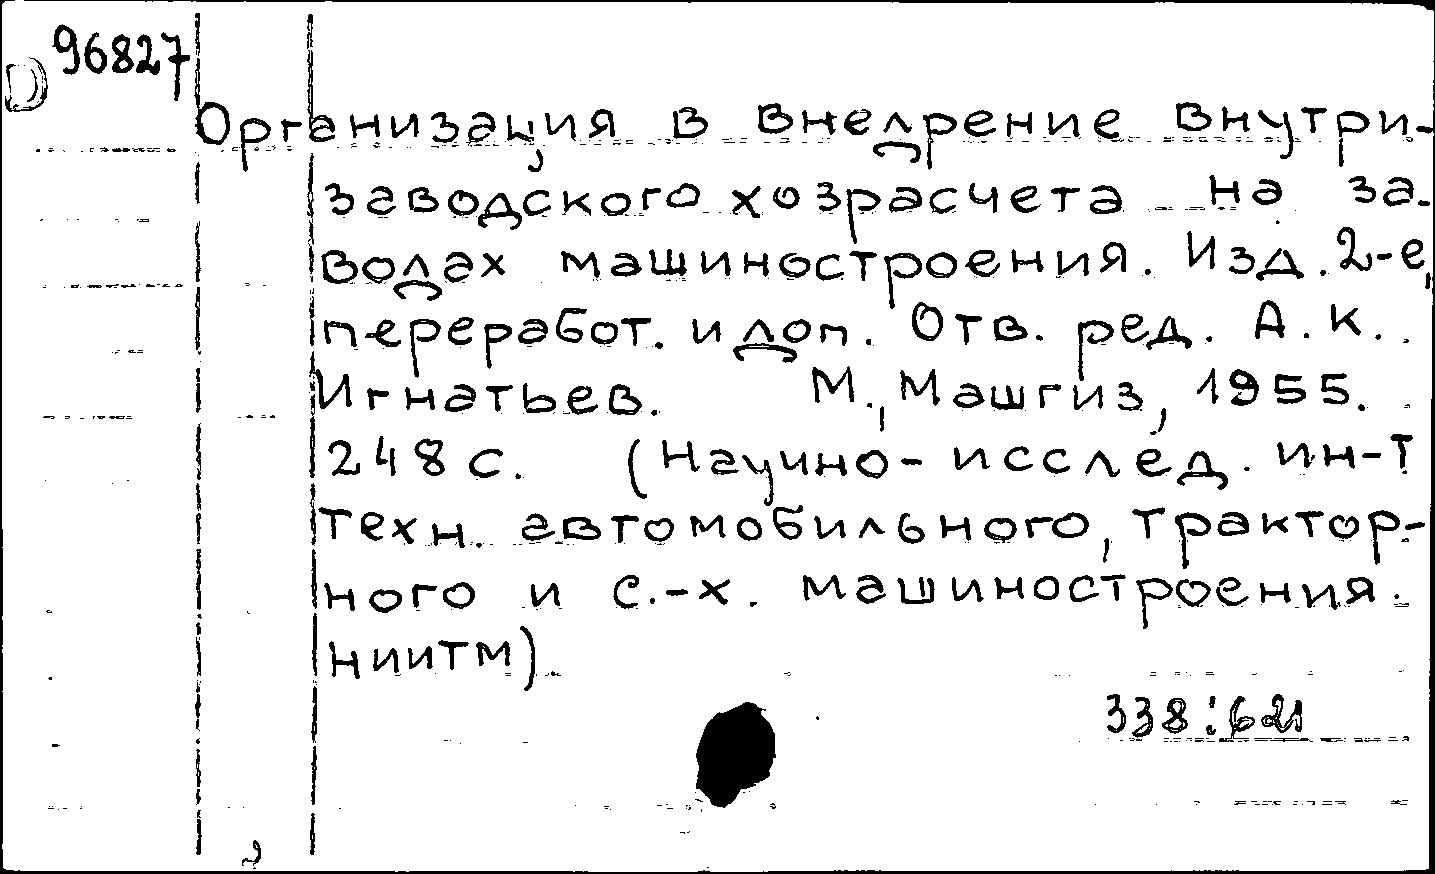 96827
D
Организация в внедрение внутри-
заводского хозрасчета на за-
водах машиностроения. Изд. 2-е,
переработ. и доп. Отв. ред. А.К.
Игнатьев. М., Машгиз, 1955.
248 с. (Научно-исслед. ин-т
техн. автомобильного, трактор-
ного и с.-х. машиностроения.
НИИТМ).
338:621